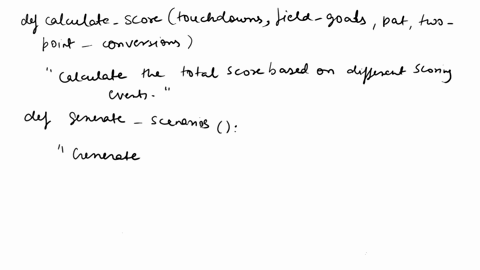 def calculate_score (touchdowns, field-goals, pat, two-
point - conversions)
" Calculate the total score based on different scoring
events. "
def generate - scenarios ():
" Generate